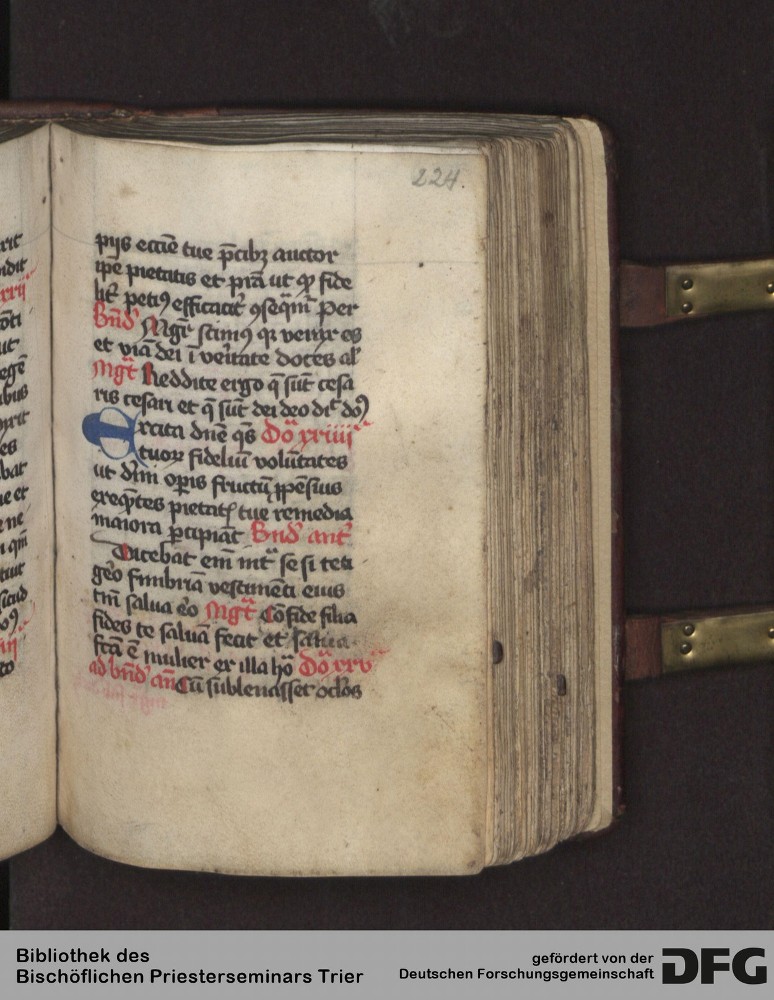 224.
pijs eccĩe tue p̃cibꝫ auctor
ip̃e pietatis et p̃ta ut qꝫ fide
lit̃ petimꝯ efficacit̃ ꝯseq̃m̃ Per
Bñd̃ Mgr̃ scimꝯ qꝛ verax es
et viã dei ĩ veritate doces al̃
Mgt̃ Reddite ergo q̃ sũt cesa
ris cesari et q̃ sũt dei deo dit̃ dõꝯ
Excita dñe q̃s Dõ xxiiii
tuoꝝ fideliũ volũtates
ut dĩni op̃is fructũ ꝓpẽsius
exeq̃ntes pietatꝭ tue remedia
maiora p̃cipiãt Bñd̃ ant̃
Dicebat em̃ int̃ se si teti
gẽo fimbriã vestimẽti eius
tm̃ salua ẽo Mgt̃ Cõfide filia
fides te saluã fecit et salua
fcã ẽ mulier ex illa hõ Dõ xxv
ad bñd̃ añ Cũ subleuasset oclõs
Bibliothek des
Bischöflichen Priesterseminars Trier
gefördert von der
Deutschen Forschungsgemeinschaft
DFG